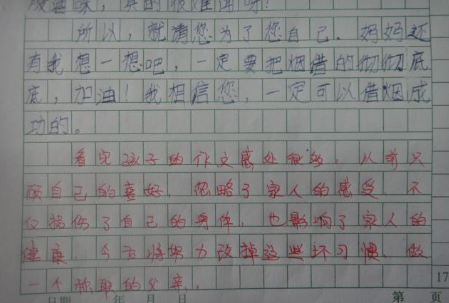 废气味，真的很难闻呀！
所以，就请您为了您自己、妈妈还
有我想一想吧，一定要把烟借的彻彻底
底，加油！我相信您，一定可以借烟成
功的。
看完孩子的作文感处很多，以前只
顾自己的喜好，忽略了家人的感受，不
仅损伤了自己的身体，也影响了家人的
健康，今天将努力改掉这些坏习惯，做
一个称职的父亲。
日期 年 月 日 第 页
17